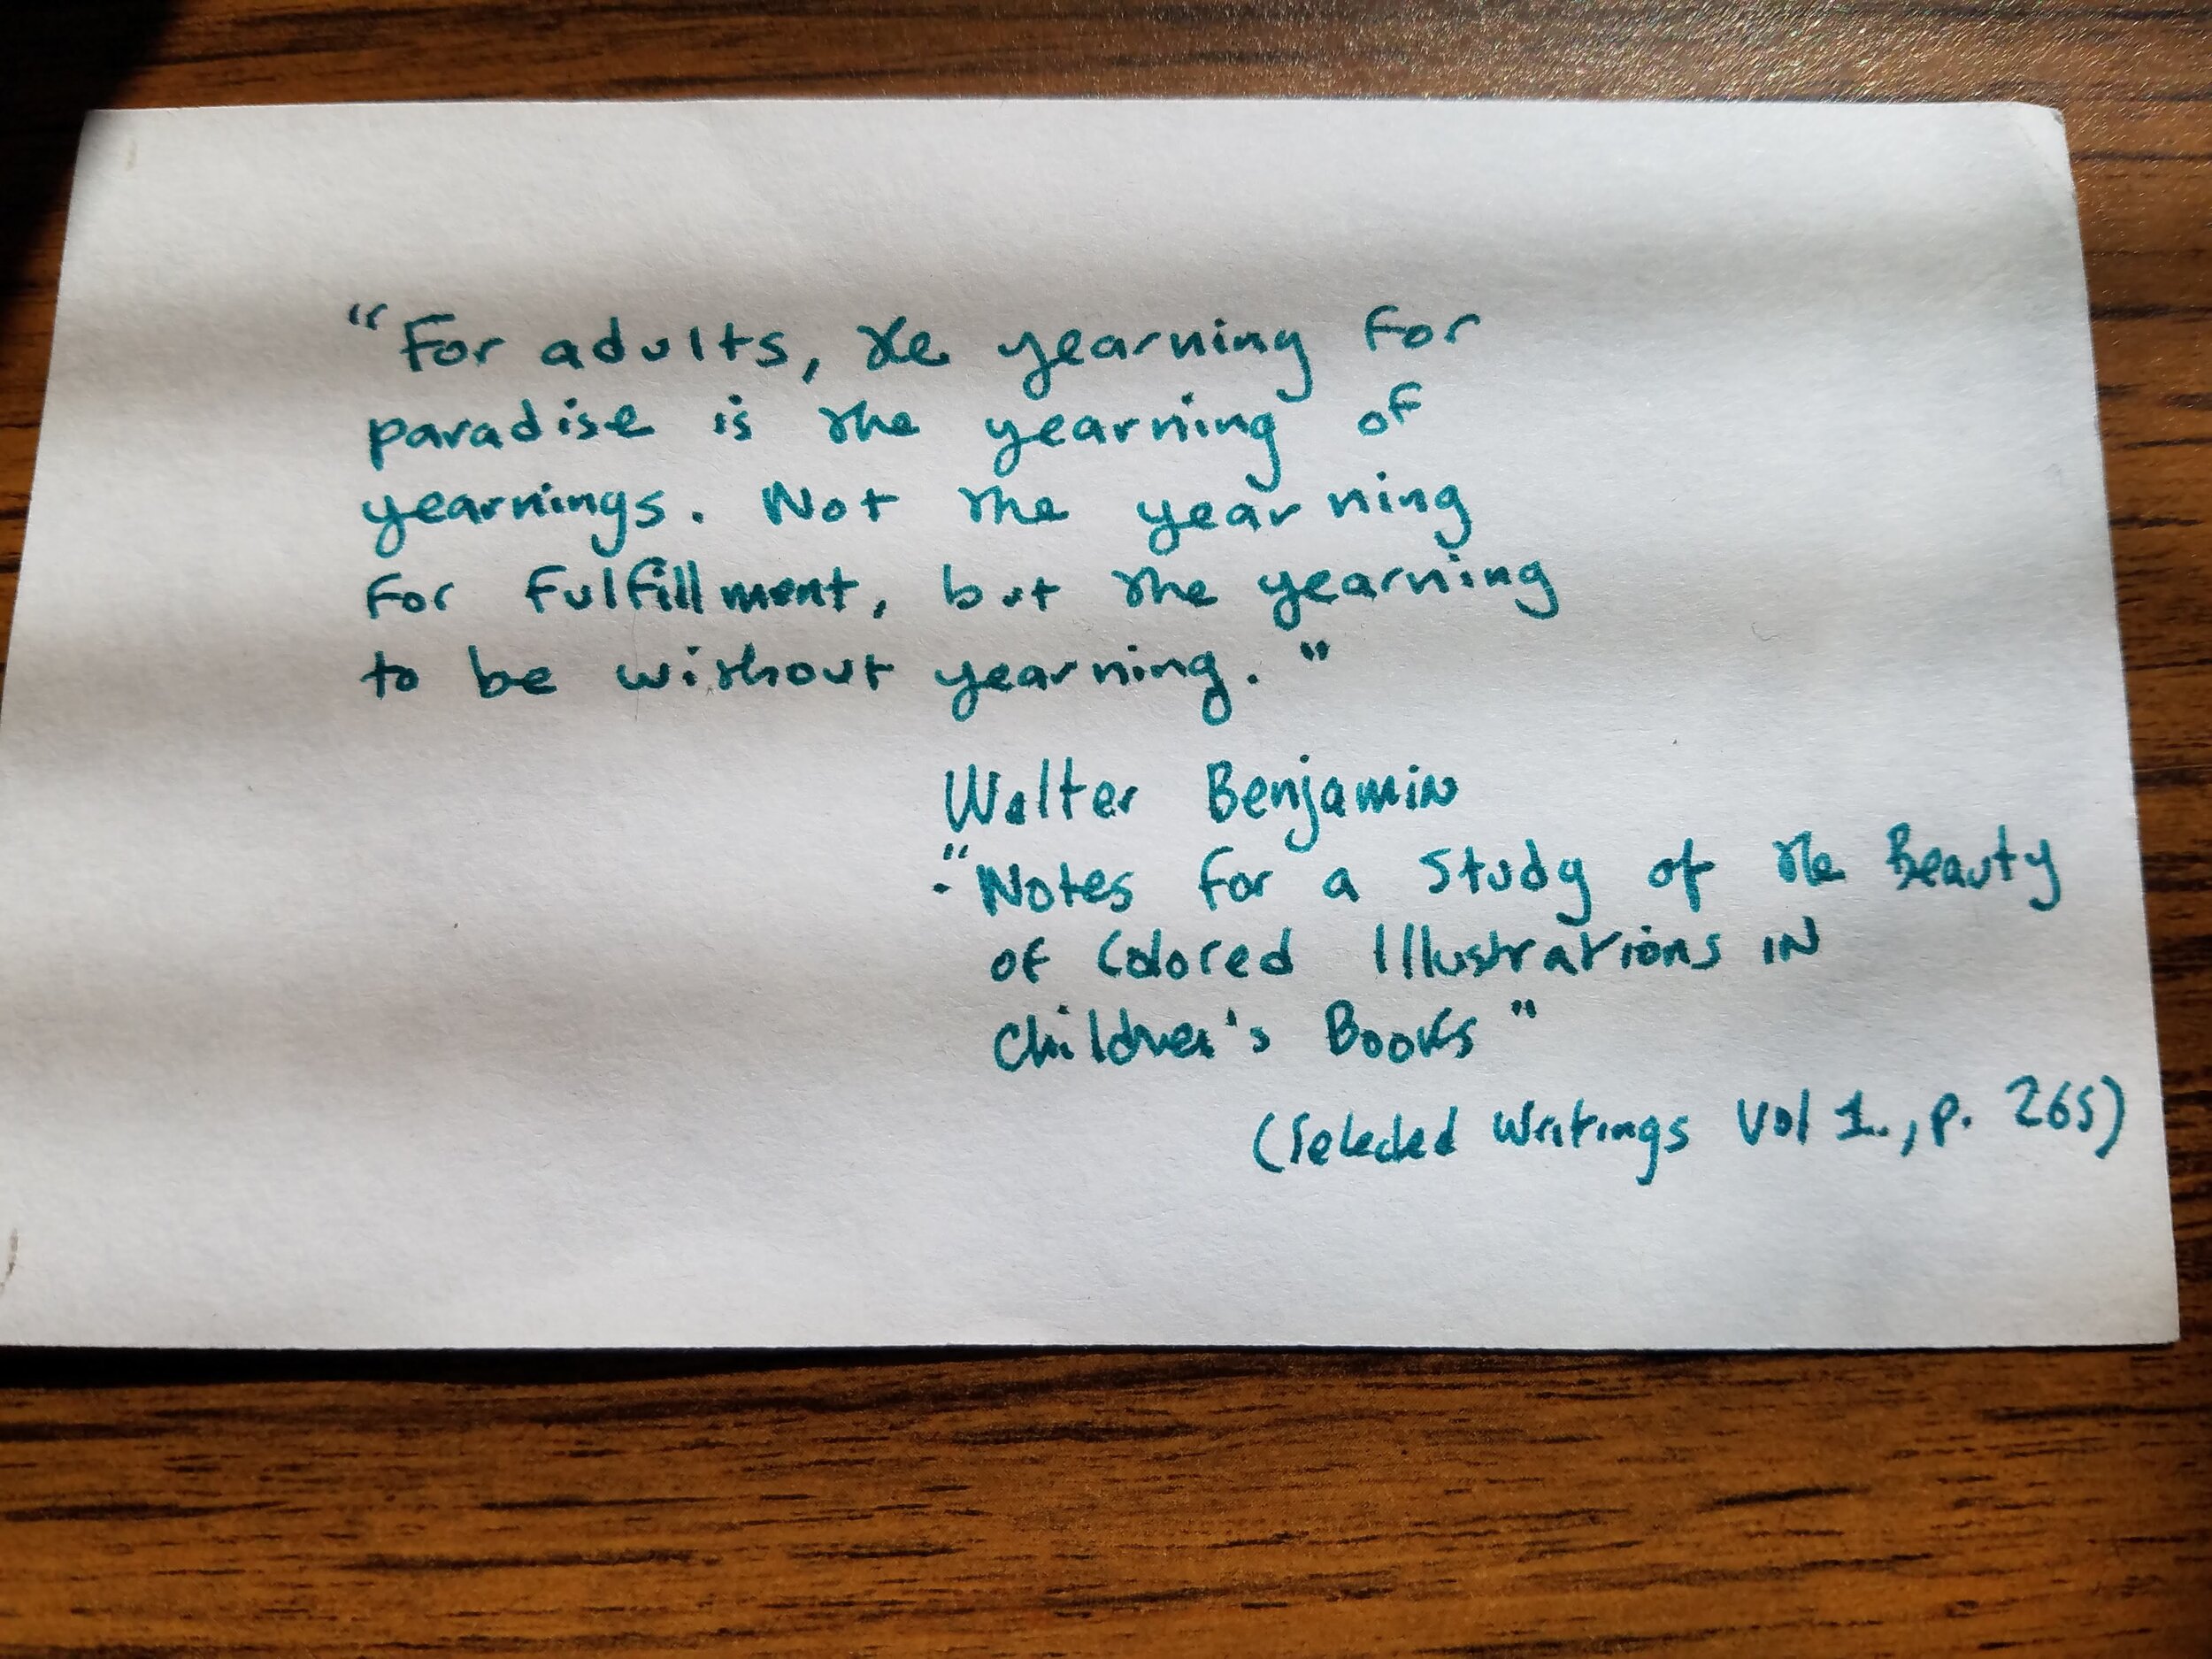 "For adults, the yearning for
paradise is the yearning of
yearnings. Not the yearning
for fulfillment, but the yearning
to be without yearning."
Walter Benjamin
"Notes for a Study of the Beauty
of Colored Illustrations in
Children's Books"
(Selected Writings Vol 1., p. 265)